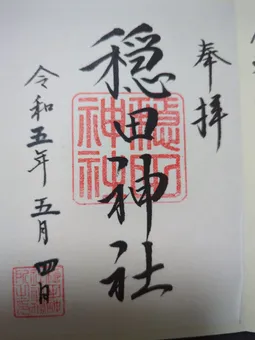 奉拝
穏田神社
令和五年五月四日
穏田
神社